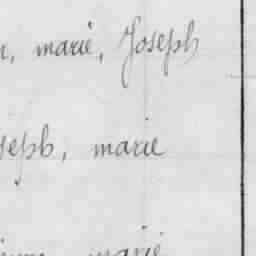 , marie, Joseph
seph, marie
marie